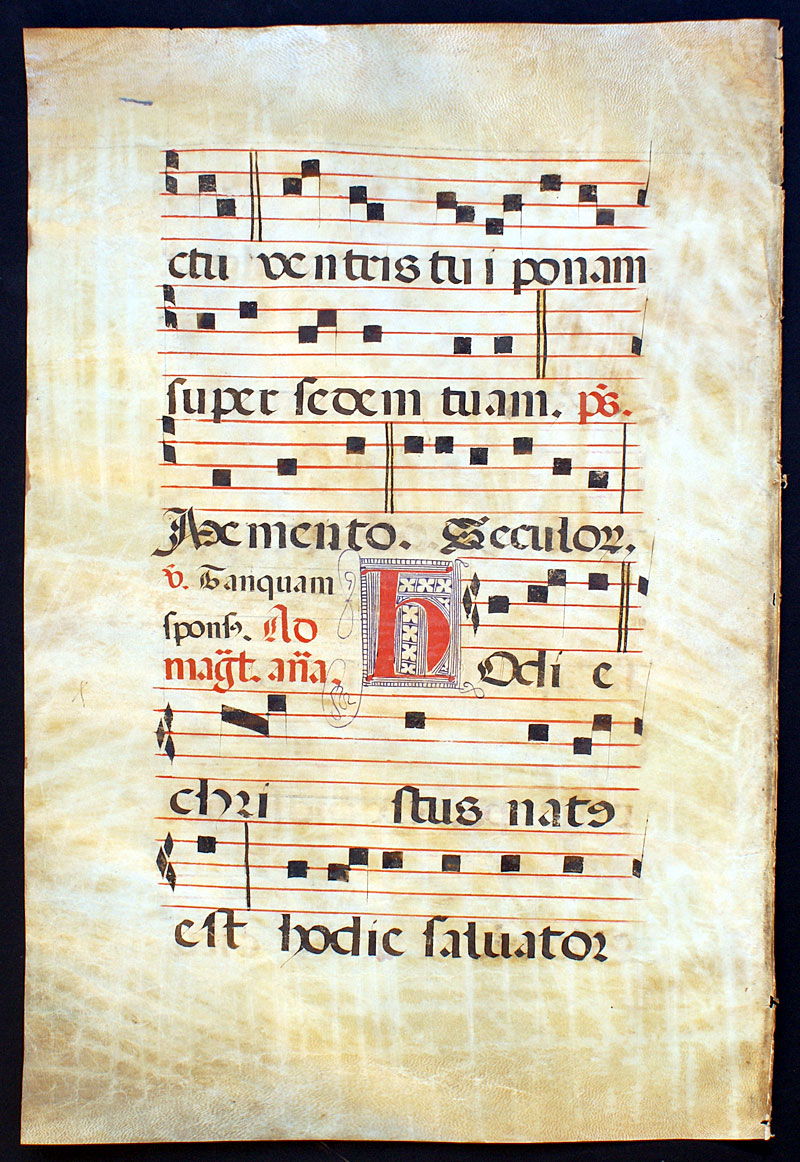 ctu ventris tui ponam
super sedem tuam. ps̃.
Memento. Seculoꝝ.
v̄. Tanquam
sponsꝰ. Ad
mag̃t. aña.
hOdi e
chri stus natꝰ
est hodie saluator